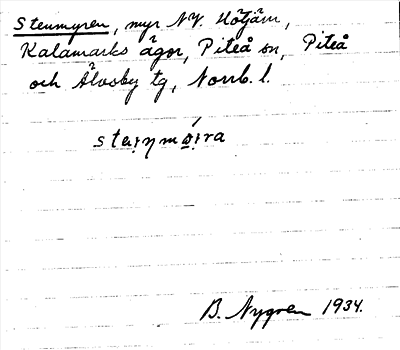 Stenmyren, myr NV. Hötjärn,
Kalamarks ägor, Piteå sn, Piteå
och Älvsby tg, Norrb. l.
B. Nygren 1934.